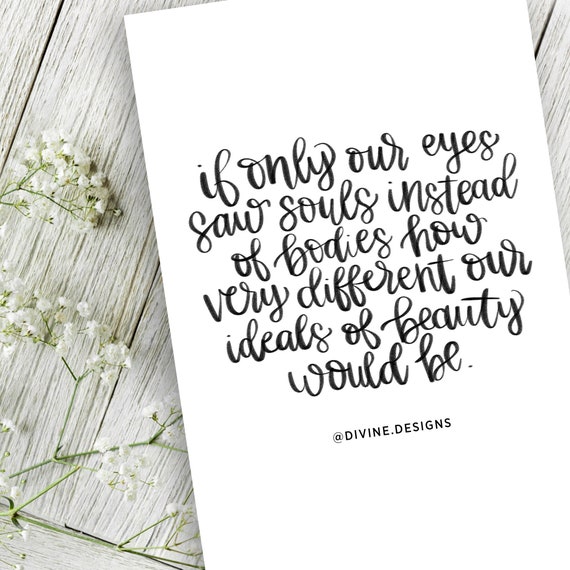 if only our eyes
saw souls instead
of bodies how
very different our
ideals of beauty
would be.
@DIVINE.DESIGNS